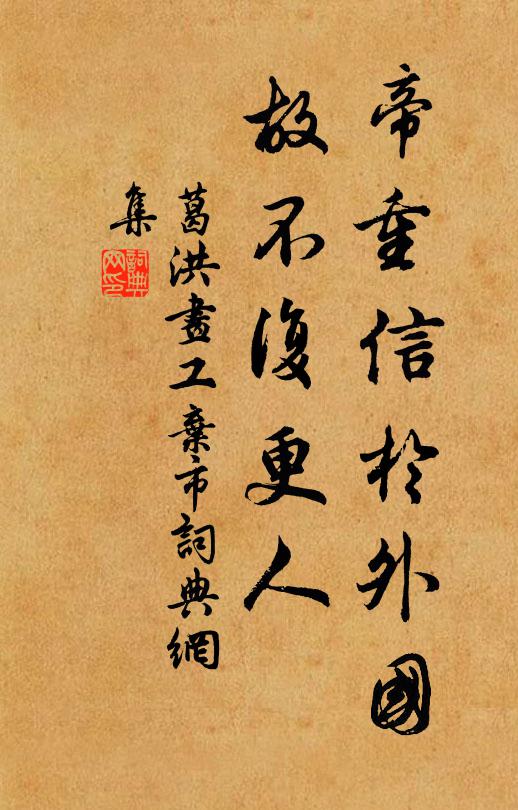 帝重信於外國
故不復更人
葛洪畫工棄市詞典網
集
詞典
网印